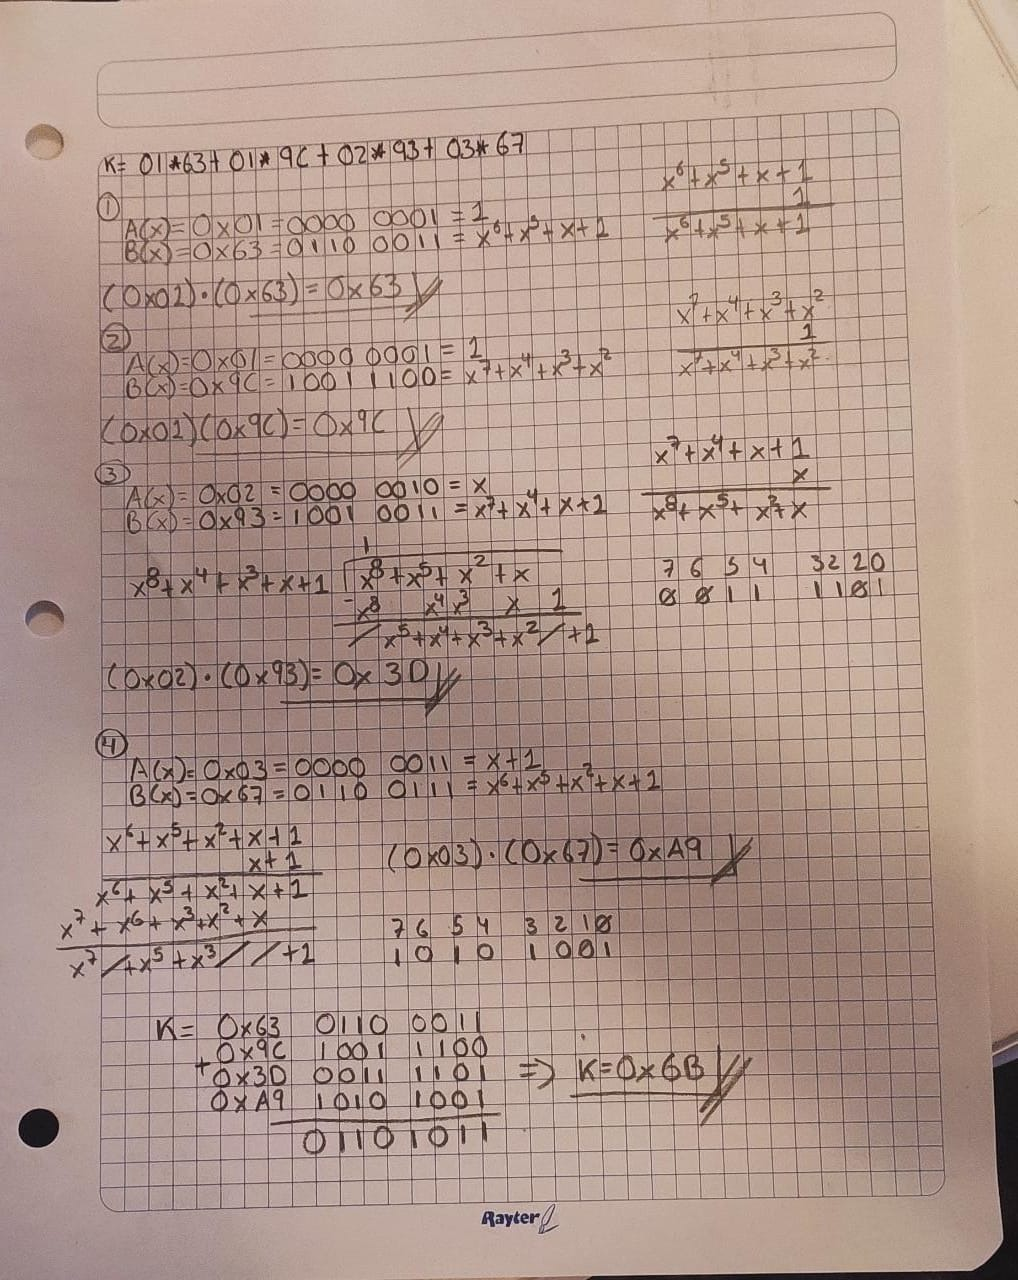 K= 01*63+ 01* 9C + 02*93+ 03* 67
x⁶+x⁵+x+1
1
x⁶+x⁵+x+1
①
A(x)= 0x01 = 0000 0001 = 1
B(x)=0x63 = 0110 0011 = x⁶+x⁵+x+1
(0x01)·(0x63)= 0x63
x⁷+x⁴+x³+x²
1
x⁷+x⁴+x³+x²
②
A(x)=0x01=0000 0001 = 1
B(x)=0x9C= 1001 1100= x⁷+x⁴+x³+x²
(0x01)(0x9C)= 0x9C
x⁷+x⁴+x+1
x
x⁸+x⁵+x²+x
③
A(x)= 0x02 = 0000 0010 = x
B(x)= 0x93=1001 0011 = x⁷+x⁴+x+1
1
x⁸+x⁴+x³+x+1 x⁸+x⁵+x²+x
-x⁸ x⁴x³ x 1
x⁵+x⁴+x³+x² +1
7 6 5 4 3210
0 0 1 1 1101
(0x02)·(0x93)= 0x3D
④
A(x)= 0x03=0000 0011 = x+1
B(x)=0x67=0110 0111 = x⁶+x⁵+x²+x+1
x⁶+x⁵+x²+x+1
x+1
x⁶+x⁵+x²+x+1
x⁷+x⁶+x³+x²+x
x⁷ +x⁵+x³ +1
(0x03)·(0x67)= 0xA9
7 6 5 4 3 2 10
1 0 1 0 1 001
K= 0x63 0110 0011
+0x9C 1001 1100
0x3D 0011 1101 => K=0x6B
0xA9 1010 1001
01101011
Rayter